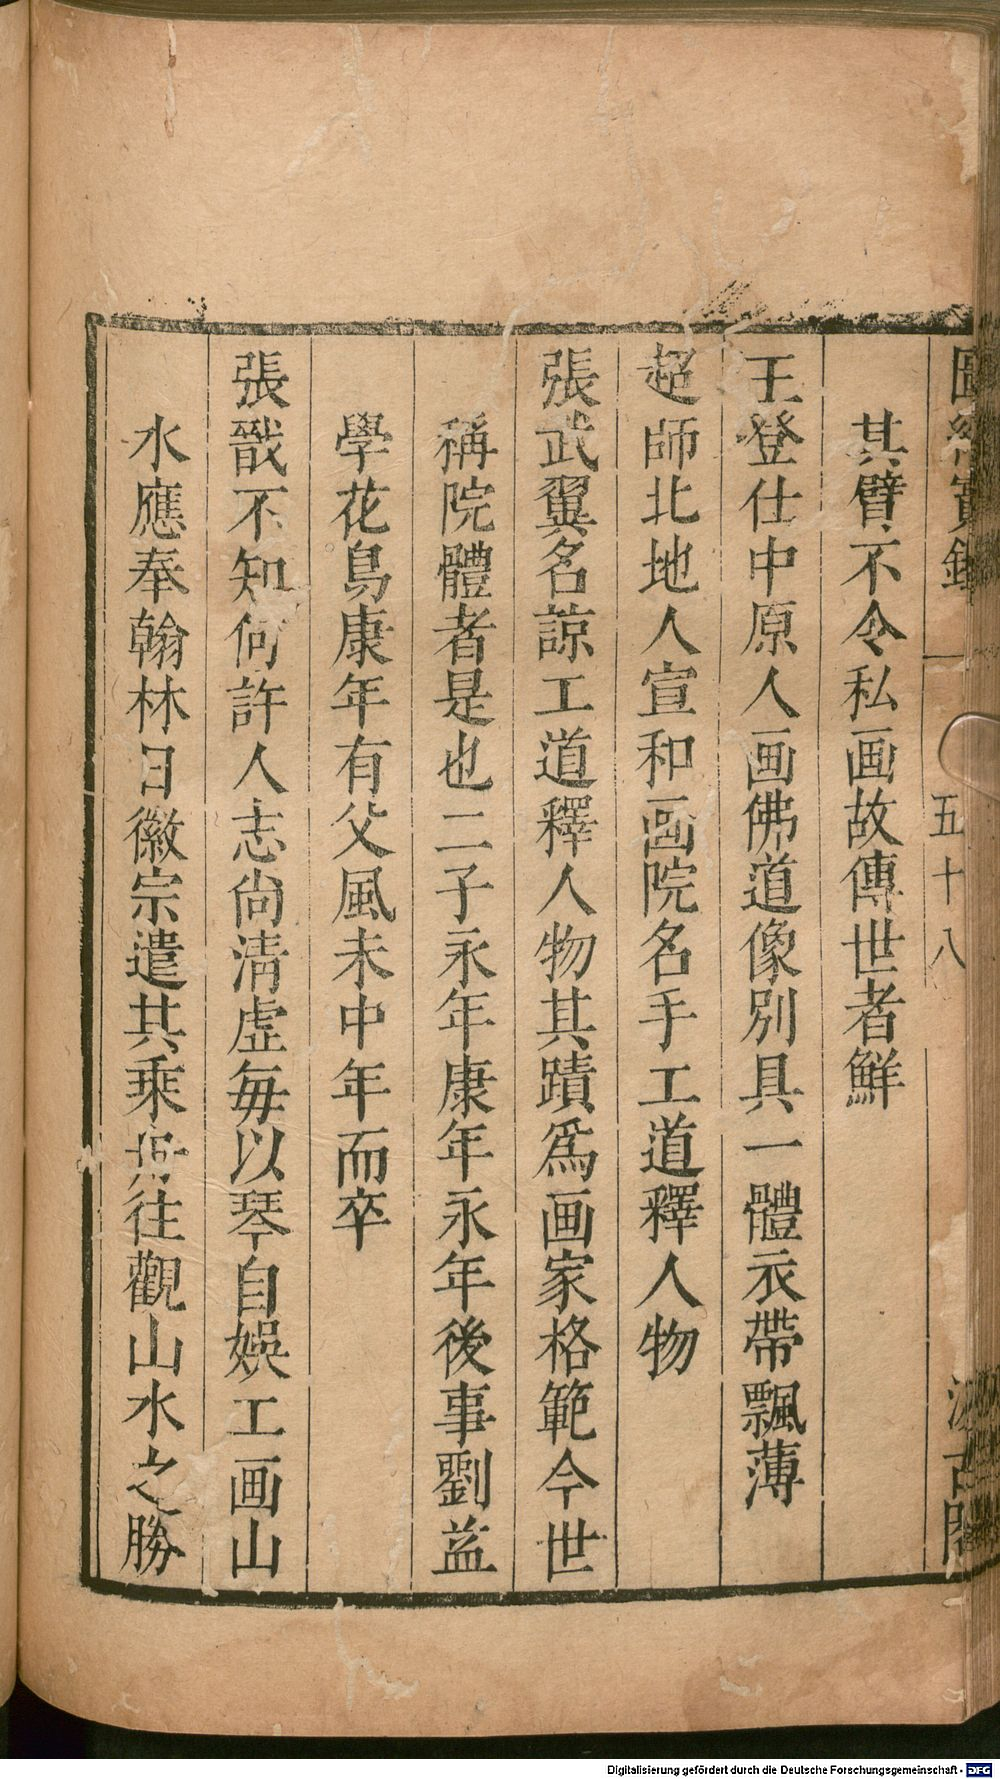 圖繪寶鑑
五十八
汲古閣
其臂不令私画故傳世者鮮
王登仕中原人画佛道像別具一體衣帶飄薄
超師北地人宣和画院名手工道釋人物
張武翼名諒工道釋人物其蹟爲画家格範今世
稱院體者是也二子永年康年永年後事劉益
學花鳥康年有父風未中年而卒
張戬不知何許人志尚清虛每以琴自娛工画山
水應奉翰林日徽宗遣其乘往觀山水之勝
Digitalisierung gefördert durch die Deutsche Forschungsgemeinschaft - DFG